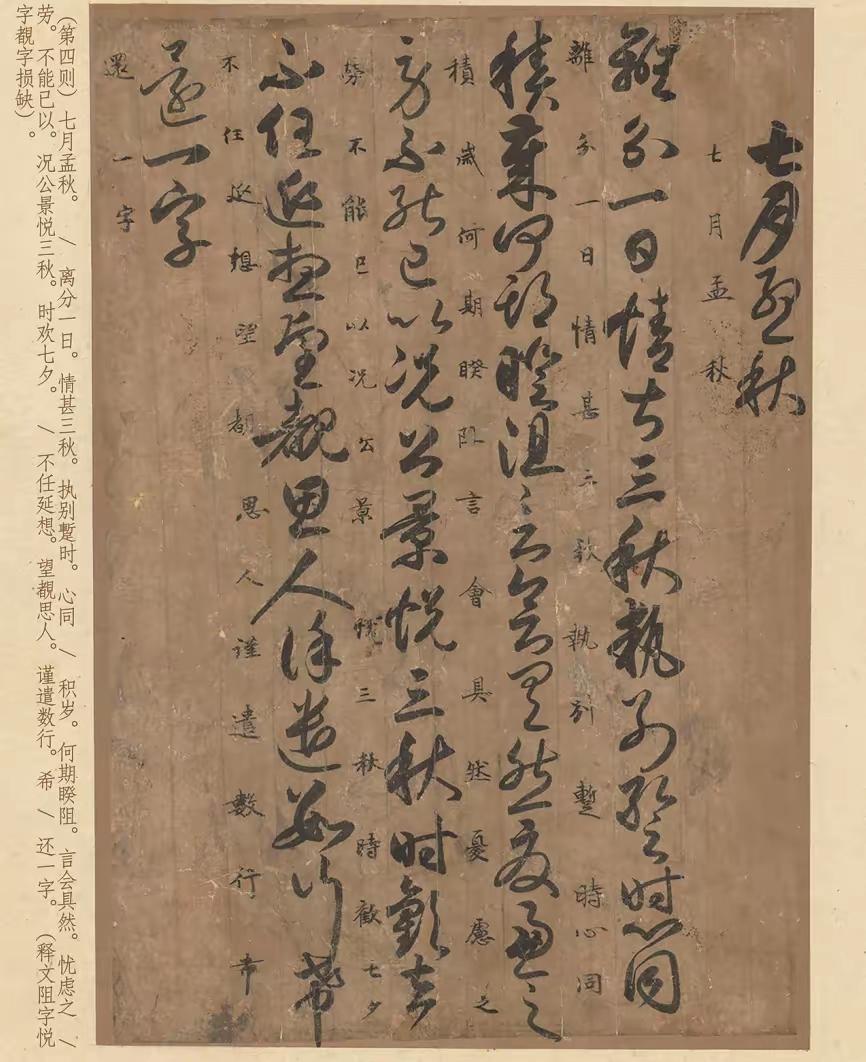 七月孟秋
七月孟秋
離分一日情甚三秋執別蹔時心同
離分一日情甚三秋執別蹔時心同
積歲何期睽阻言會具然憂慮之
積歲何期睽阻言會具然憂慮之
勞不能已以况公景悦三秋時歡七夕
勞不能已以况公景悦三秋時歡七夕
不任延想望覩思人謹遣數行希
不任延想望覩思人謹遣數行希
還一字
還一字
（第四则）七月孟秋。/离分一日。情甚三秋。执别蹔时。心同/积岁。何期睽阻。言会具然。忧虑之/
劳。不能已以。况公景悦三秋。时欢七夕。/不任延想。望覩思人。谨遣数行。希/还一字。（释文阻字悦
字覩字损缺）。